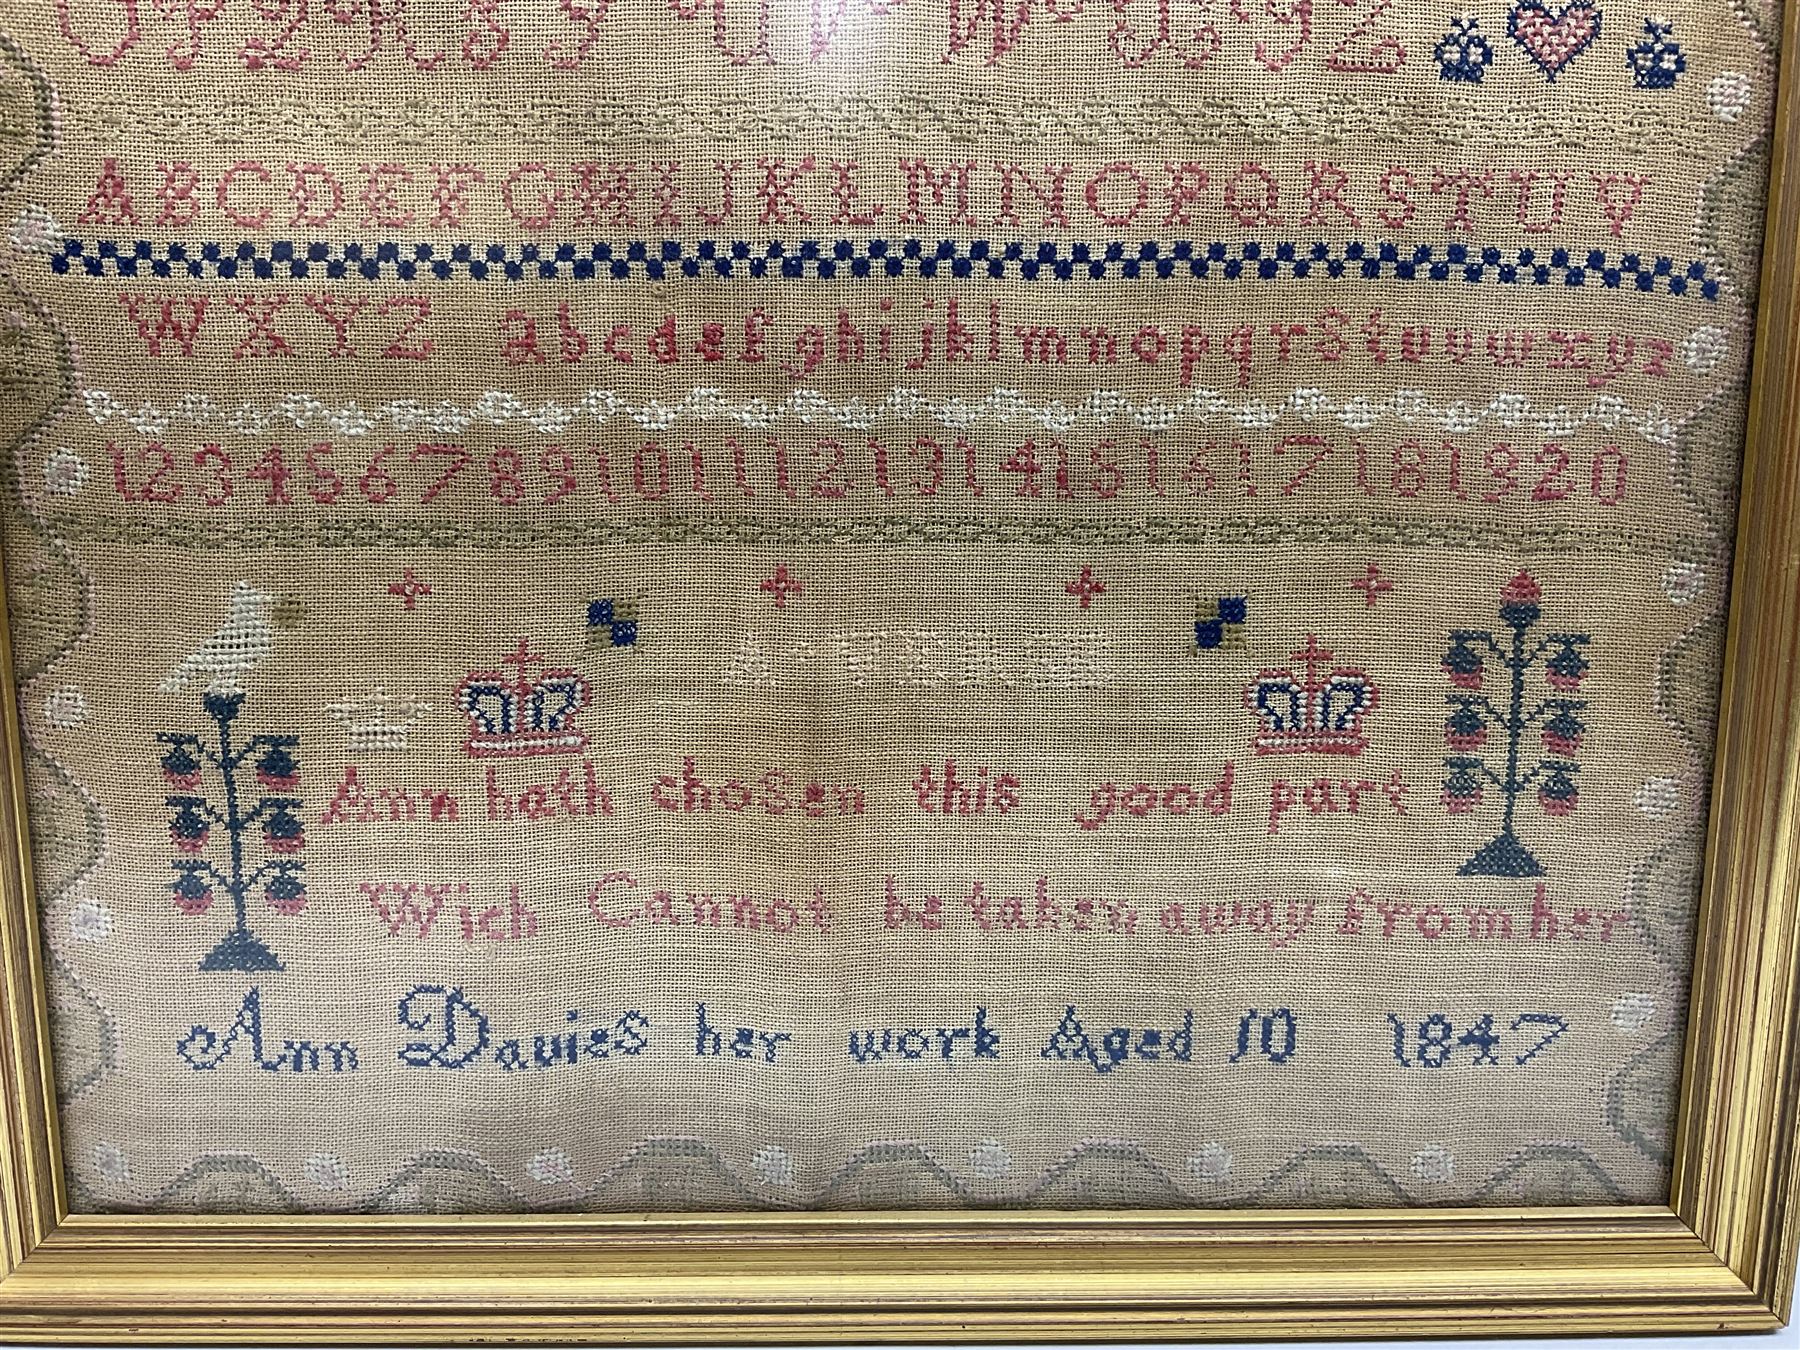 O P Q R S T U V W X Y Z
A B C D E F G H I J K L M N O P Q R S T U V
W X Y Z a b c d e f g h i j k l m n o p q r s t u v w x y z
1 2 3 4 5 6 7 8 9 10 11 12 13 14 15 16 17 18 19 20
Ann hath chosen this good part
Wich Cannot be taken away from her
Ann Davies her work Aged 10 1847